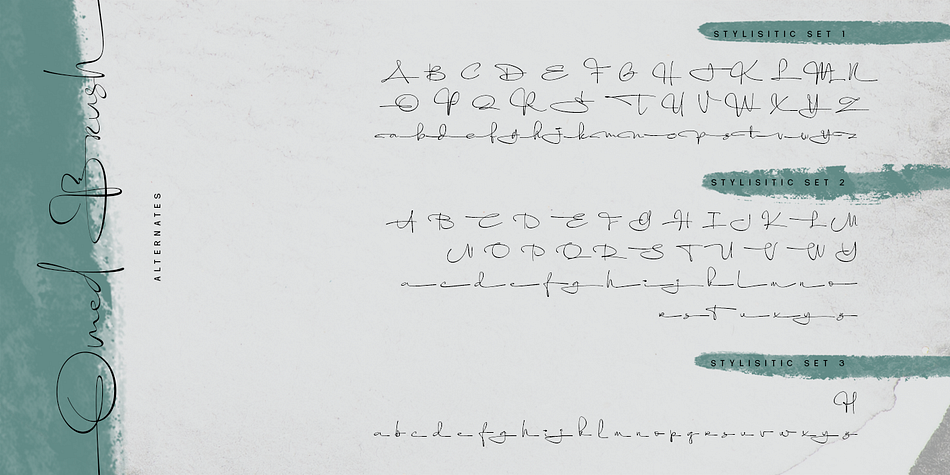 Qmed Brush
ALTERNATES
STYLISITIC SET 1
A B C D E F G H J K L M N
O P Q R S T U V W X Y Z
a b d e f g h j k m n o p s t u y z
STYLISITIC SET 2
A B C D E F G H I J K L M
N O P Q R S T U V W Y
a c d e f g h i j k l m n o
r s t u x y z
STYLISITIC SET 3
H
a b c d e f g h i j k l m n o p q r s u v w x y z